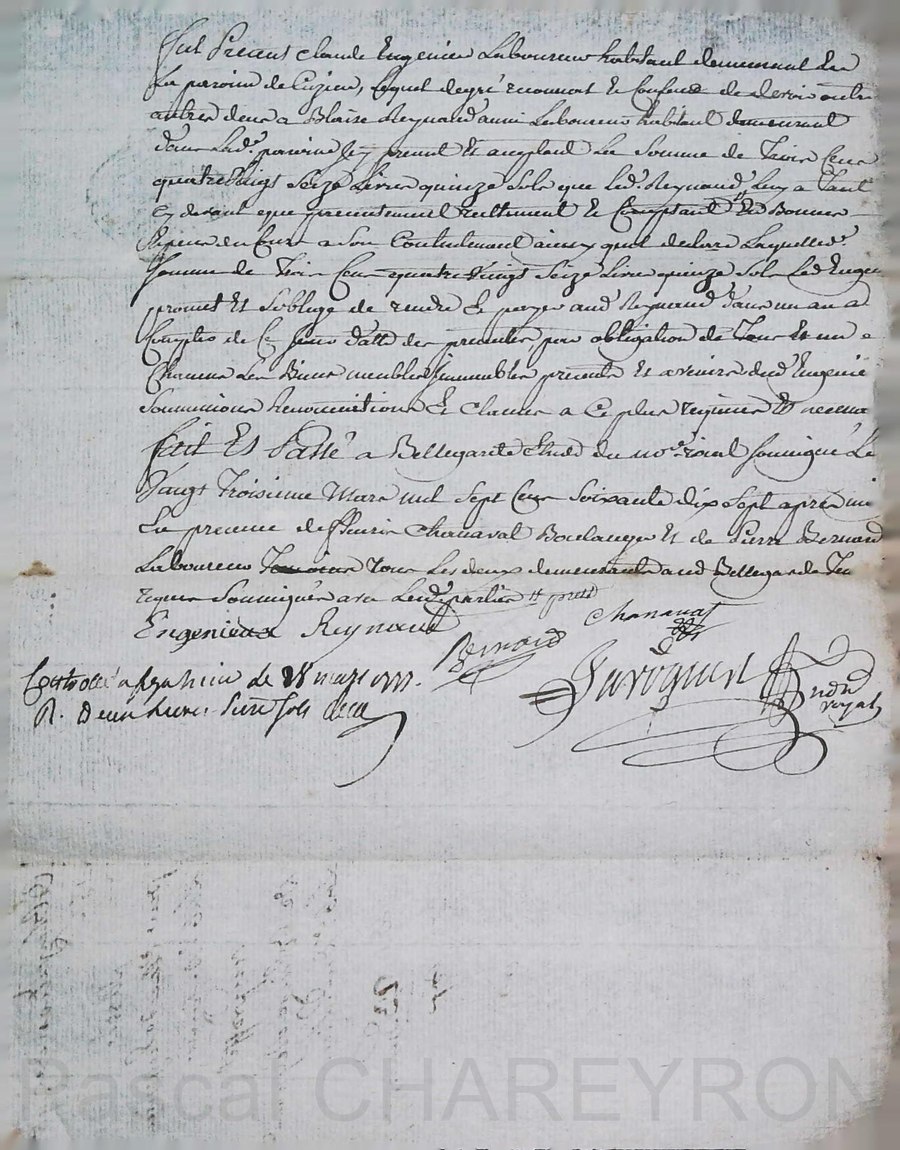 fut Présent Claude Eugenier Laboureur habitant demeurant en
la paroisse de Cuzieu, Lequel degré reconnoit et Confesse de devoir
entre deux a Blaise Reynaud aussi Laboureur habitant demeurant
dans Lad.e paroisse Icy present et acceptant La Somme de Trois Cens
quatrevingt Seize Livres quinze Sols que led. Reynaud Luy a
cy devant que presentement reellement et Comptant En Bonnes
Especes du Cours a Son Contentement ainsy quil declare Laquelle
Somme de Trois Cens quatre Vingt Seize Livres quinze Sols Led Eugen
promet Et Soblige de rendre Et payer aud Reynaud dans un an a
Compter de Ce Jour datte des presentes par obligation de Tous Et un
Chacuns Les Biens meubles Immeubles presents Et avenirs dud Eugenie
Soumissions Renonciations Et Clauses a Ce plus requises Et necessa
Fait Et Passé a Bellegarde Etude du no.re roial Soussigné Le
Vingt Troisieme Mars mil Sept Cens Soixante dix Sept apres mi
En presence de Fleurie Chanavat Boulanger Et de Pierre Bernard
Laboureur Tous Les deux demeurants aud Bellegarde
requis Soussignés avec Lesd parties
Eugenier Reynaud
Chanavat
Bernard
Javogues
no.re royal
Contrôlé a de 28 mars 1777.
R. deux livres Sept Sols